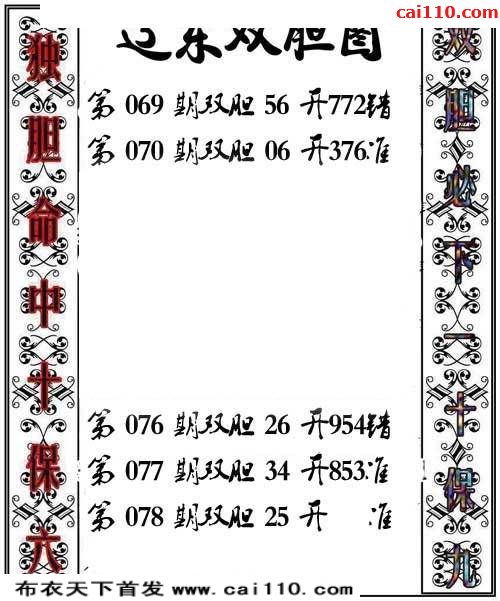 cai110.com
东双胆图
独胆命中十保六
第 069 期双胆 56 开772错
第 070 期双胆 06 开376准
第 076 期双胆 26 开954错
第 077 期双胆 34 开853准
第 078 期双胆 25 开 准
双胆必下一十保九
布衣天下首发 www.cai110.com